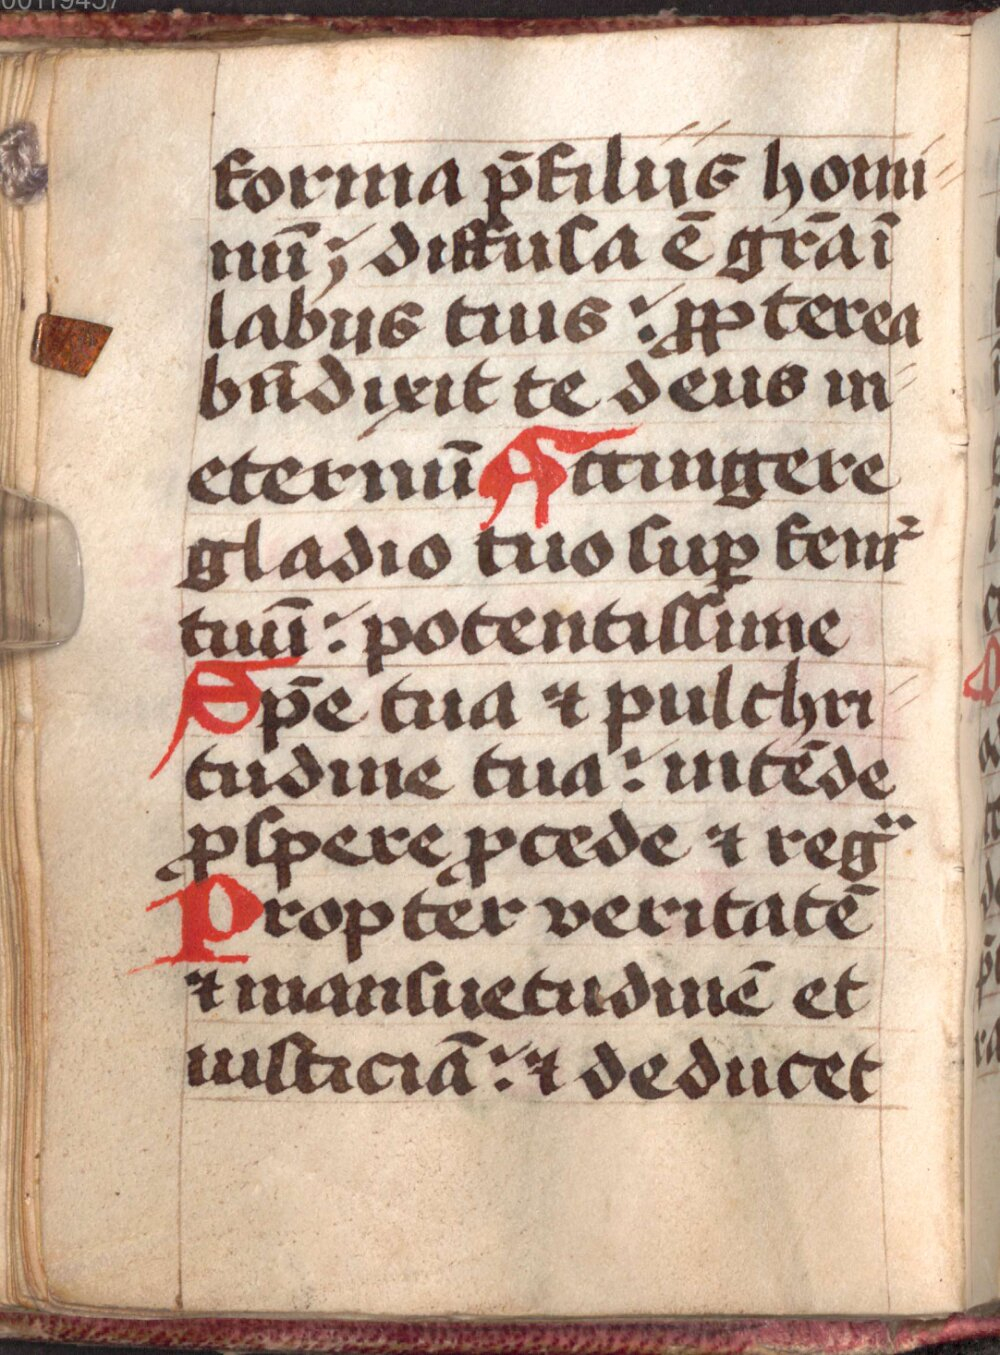 forma p̄ filiis homi
nū; diffusa ē gr̄a ī
labiis tuis : propterea
bn̄dixit te deus in
eternū Accingere
gladio tuo suꝑ femᷣ
tuū : potentissime
Sp̄e tua ⁊ pulchri
tudine tua : intēde
ꝓspere ꝓcede ⁊ reg
Propter veritatē
⁊ mansuetudinē et
iusticiā : ⁊ deducet